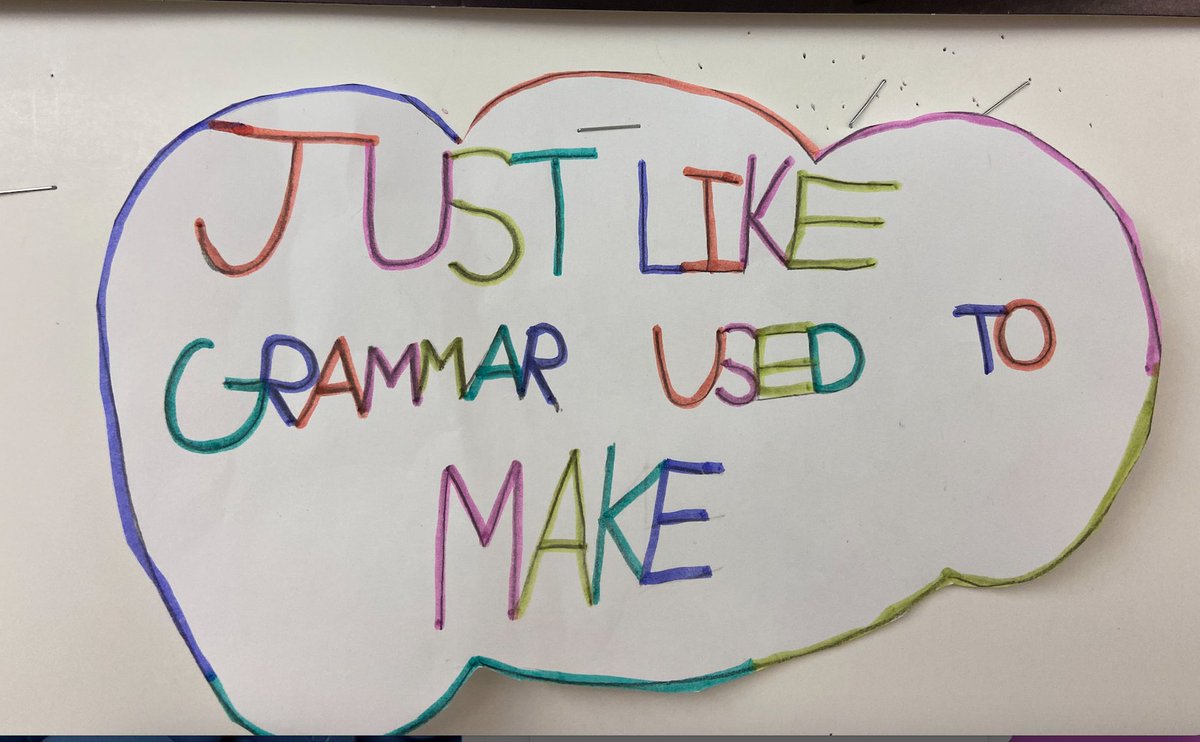 JUST LIKE
GRAMMAR USED TO
MAKE